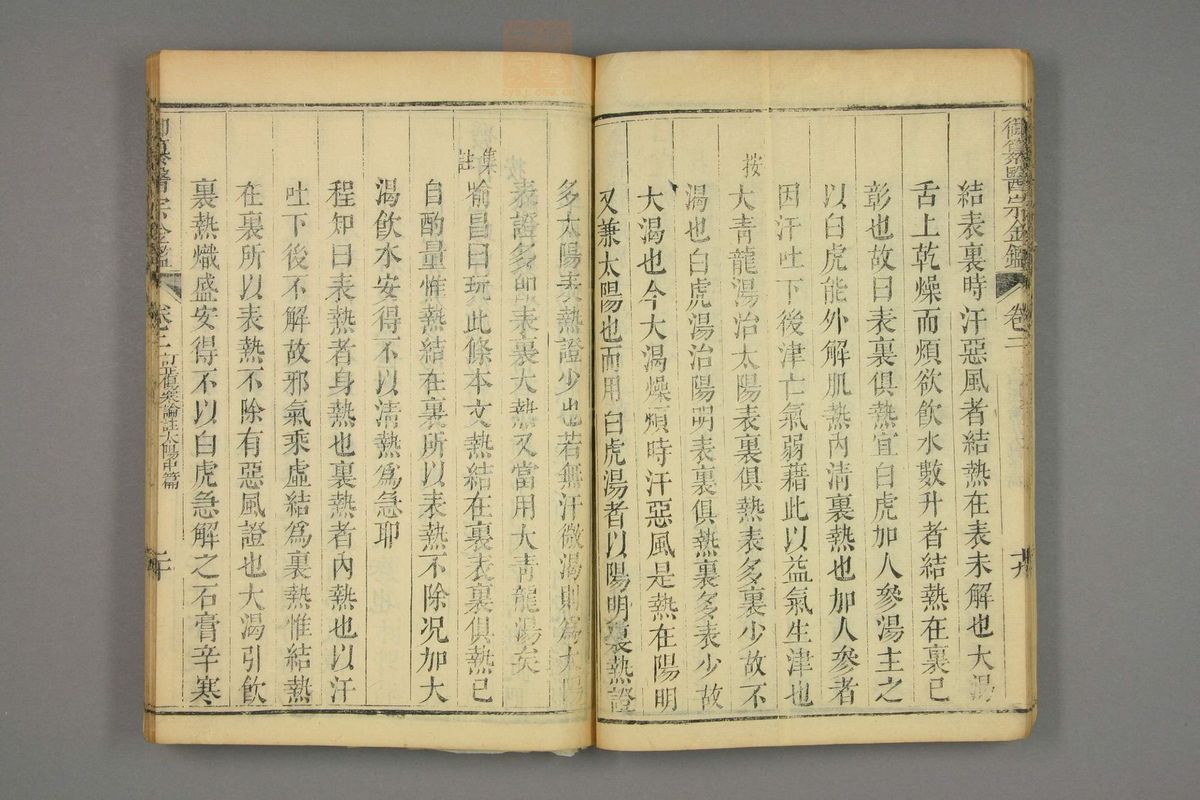 御纂醫宗金鑑 卷三 十九
結表裏時汗惡風者結熱在表未解也大渴
舌上乾燥而煩欲飲水數升者結熱在裏已
彰也故曰表裏俱熱宜白虎加人參湯主之
以白虎能外解肌熱內清裏熱也加人參者
因汗吐下後津亡氣弱藉此以益氣生津也
按大青龍湯治太陽表裏俱熱表多裏少故不
渴也白虎湯治陽明表裏俱熱裏多表少故
大渴也今大渴燥煩時汗惡風是熱在陽明
又兼太陽也而用白虎湯者以陽明裏熱證
多太陽表熱證少也若無汗微渴則為太陽
表證多即表裏大熱又當用大青龍湯矣
集註喻昌曰玩此條本文熱結在裏表裏俱熱已
自酌量惟熱結在裏所以表熱不除況加大
渴飲水安得不以清熱為急耶
程知曰表熱者身熱也裏熱者內熱也以汗
吐下後不解故邪氣乘虛結為裏熱惟結熱
在裏所以表熱不除有惡風證也大渴引飲
裏熱熾盛安得不以白虎急解之石膏辛寒
御纂醫宗金鑑 卷三 訂正傷寒論註太陽中篇 二十